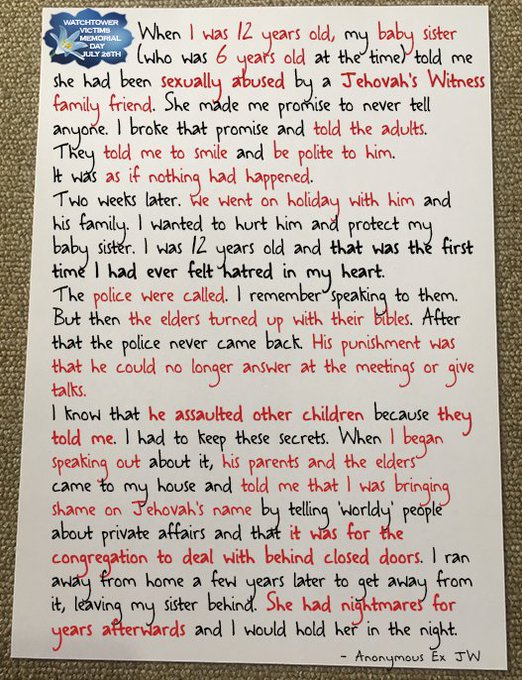 WATCHTOWER
VICTIMS
MEMORIAL
DAY
JULY 26TH
When I was 12 years old, my baby sister
(who was 6 years old at the time) told me
she had been sexually abused by a Jehovah's Witness
family friend. She made me promise to never tell
anyone. I broke that promise and told the adults.
They told me to smile and be polite to him.
It was as if nothing had happened.
Two weeks later. We went on holiday with him and
his family. I wanted to hurt him and protect my
baby sister. I was 12 years old and that was the first
time I had ever felt hatred in my heart.
The police were called. I remember speaking to them.
But then the elders turned up with their bibles. After
that the police never came back. His punishment was
that he could no longer answer at the meetings or give
talks.
I know that he assaulted other children because they
told me. I had to keep these secrets. When I began
speaking out about it, his parents and the elders
came to my house and told me that I was bringing
shame on Jehovah's name by telling 'worldy' people
about private affairs and that it was for the
congregation to deal with behind closed doors. I ran
away from home a few years later to get away from
it, leaving my sister behind. She had nightmares for
years afterwards and I would hold her in the night.
- Anonymous Ex JW